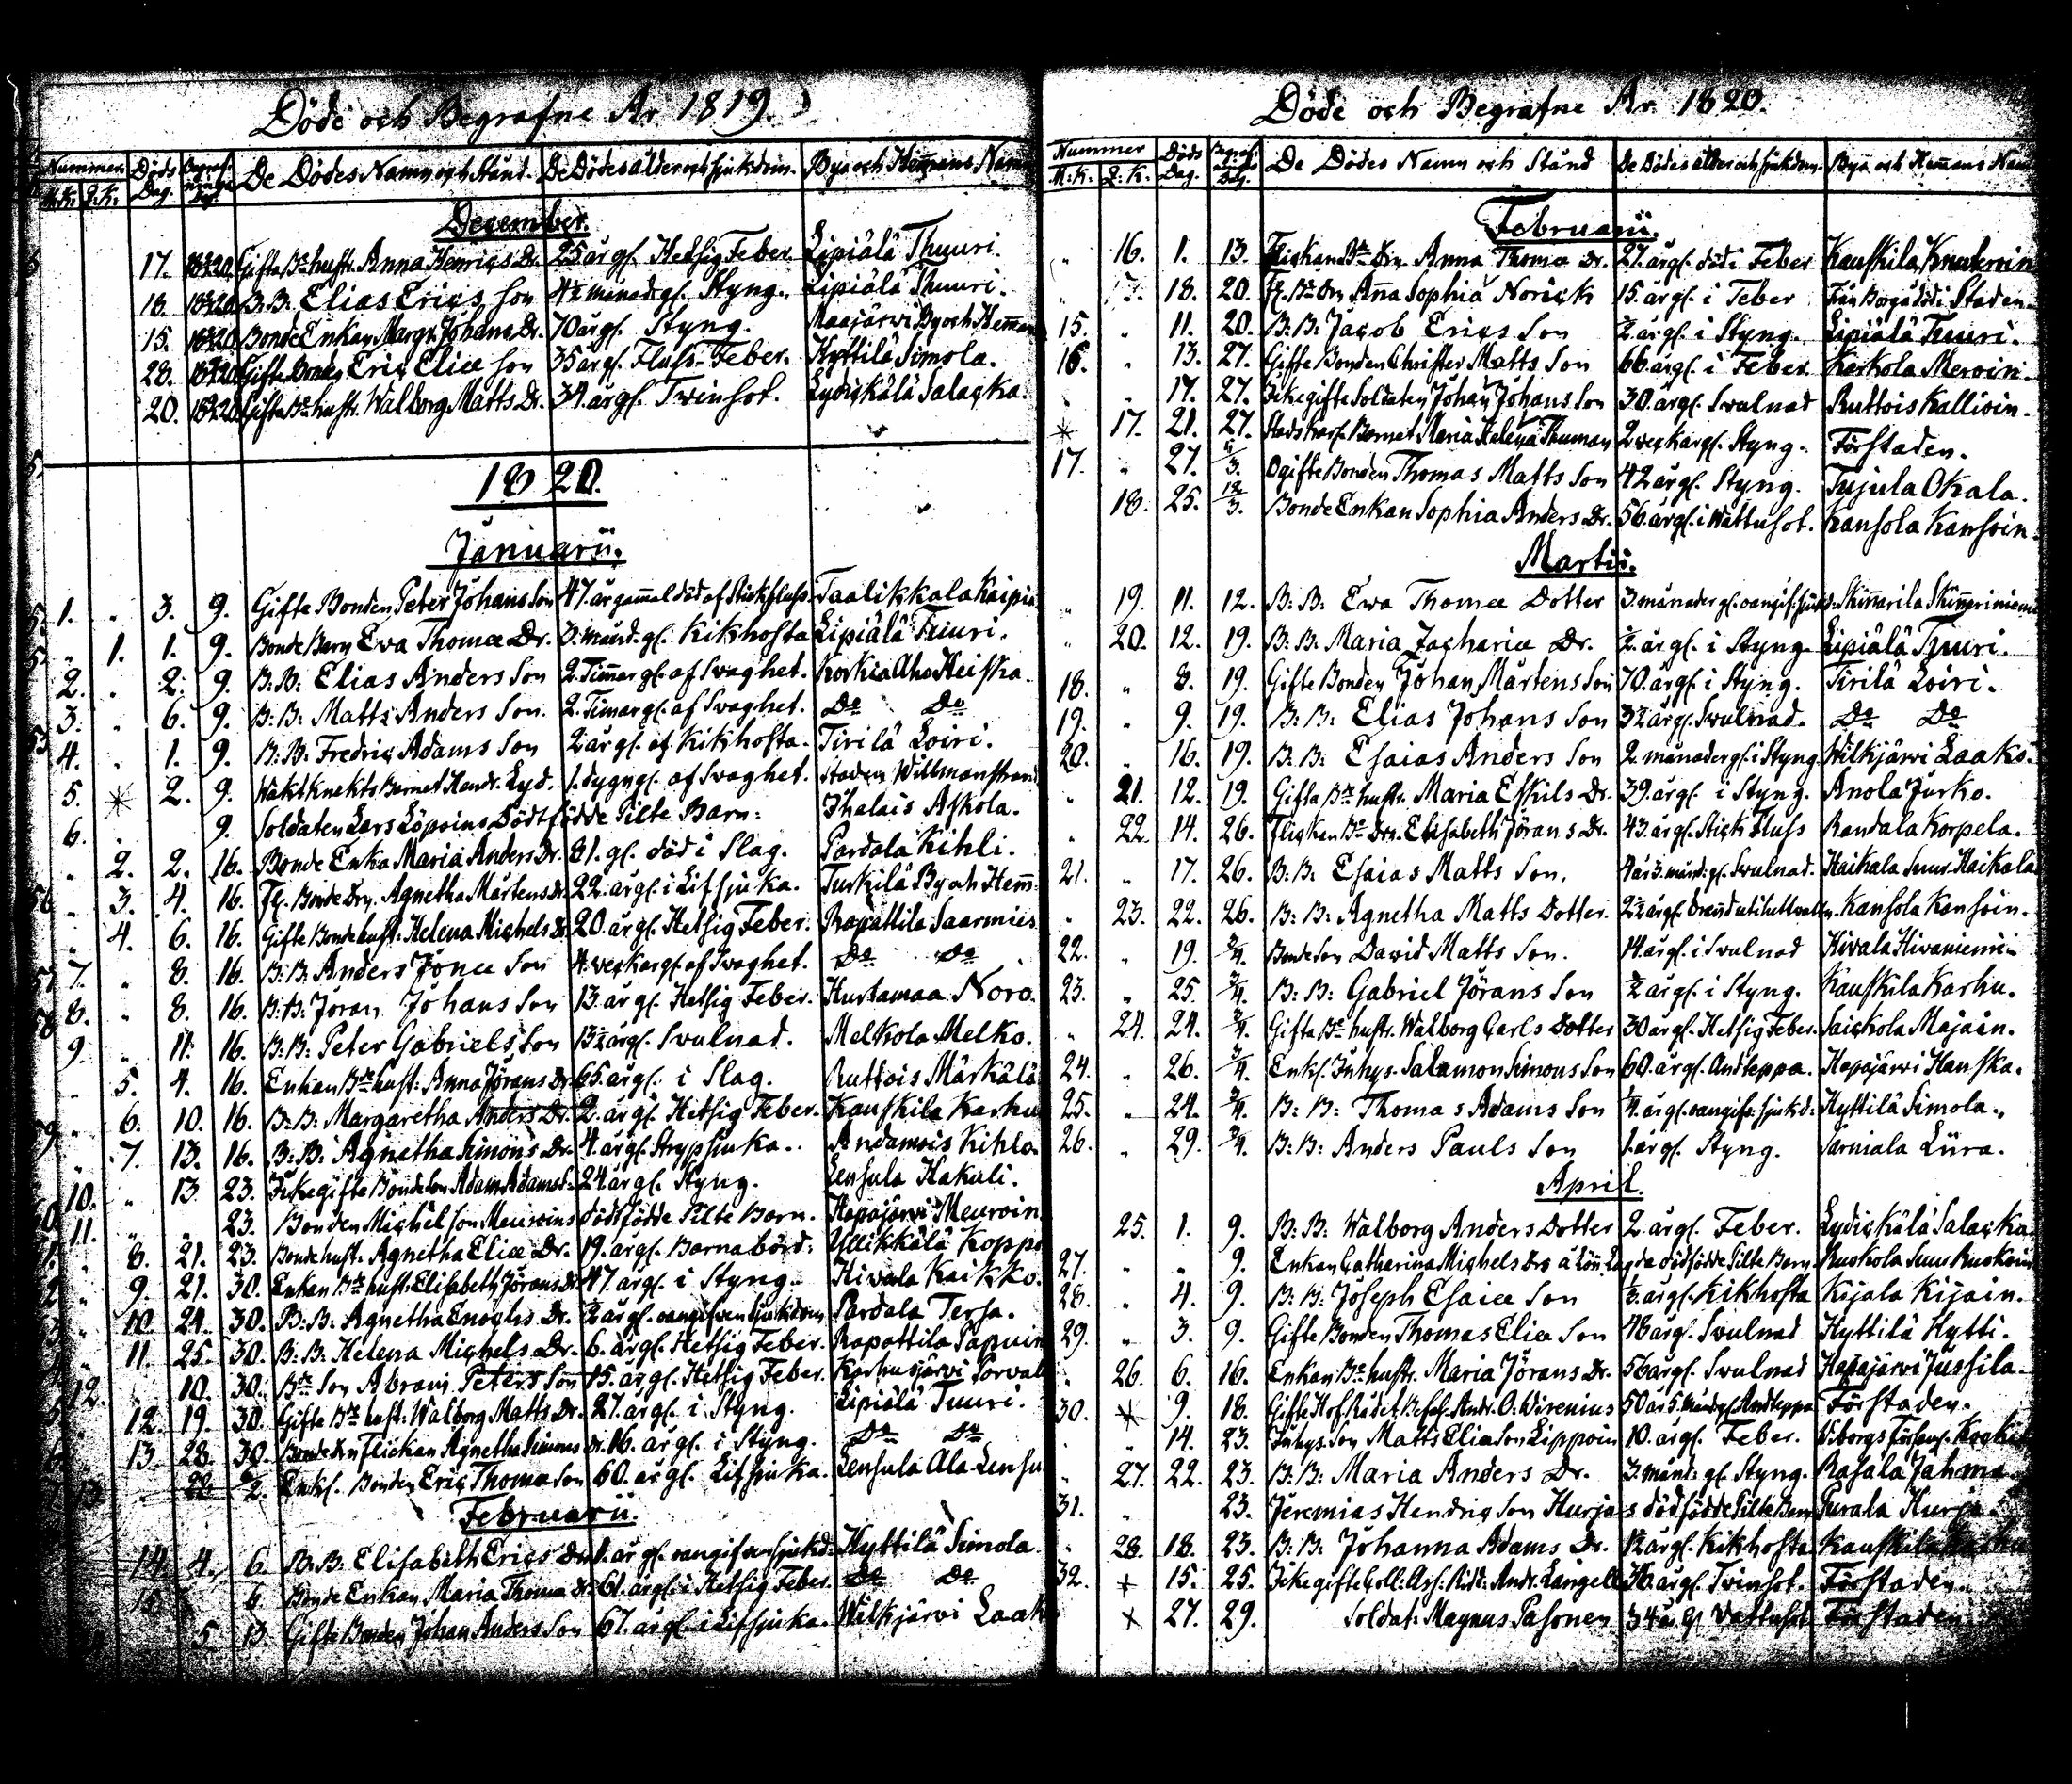 Döde och Begrafne År 1819.
Nummer Döds Begraf. De Dödes Namn och Stånd. De Dödes ålder och sjukdom. Bya och Hemmans Namn
M.K. Q.K. Dag. nings Dag.
December.
17. 18 2/1 20 Gifta Bde hustr. Anna Henrics Dr. 25 år gl. Hetsig Feber. Lipiälä Thuuri.
18. B.B. Elias Erics Son 4½ månad gl. Styng. Lipiälä Thuuri.
15. Bonde Enkan Margr. Johans Dr. 70 år gl. Styng. Maajärwi By och Hemman
28. Gifte Bonden Eric Eliæ Son 35 år gl. Fluss Feber. Hyttilä Simola.
20. Gifta Bde hustr. Walborg Matts Dr. 34. år gl. Twinsot. Lydickälä Salacka.
1820.
Januarii.
1. „ 3. 9. Gifte Bonden Peter Johans Son 47. år gammal död af Stickfluss. Taalikkala Kaipia
„ 1. 1. 9. Bonde Barn Ewa Thomæ Dr. 3. månd. gl. Kikhosta Lipiälä Tuuri.
2. „ 2. 9. B: B: Elias Anders Son 2. Timar gl. af Svaghet. Korkia Aho Heiska.
3. „ 6. 9. B: B: Matts Anders Son. 2. Timar gl. af Svaghet. Do Do
4. „ 1. 9. B: B: Fredric Adams Son 2 år gl. af Kikhosta. Tirilä Loiri.
5. * 2. 9. Waktknekts Barnet Hendr. Lyd. 1. dygn gl. af Svaghet. Staden Willmanstrand
6. „ 9. Soldaten Lars Löpoins Dödtfödde Pilte Barn: Ihalais Askola.
„ 2. 2. 16. Bonde Enka Maria Anders Dr. 81. gl. död i Slag. Pardala Kihli.
„ 3. 4. 16. Fl. Bonde Drn. Agnetha Mårtens dr. 22. år gl. i Lifsjuka. Turkilä By och Hem:
„ 4. 6. 16. Gifte Bonde hust: Helena Michels Dr. 20. år gl. Hetsig Feber. Rapattila Saarmies
7. „ 8. 16. B: B: Anders Jonæ Son 4. weckar gl. af Svaghet. Do Do
8. „ 8. 16. B: B: Jöran Johans Son 13. år gl. Hetsig Feber. Hurtamaa Noro.
9. „ 11. 16. B: B: Peter Gabriels Son 13½ år gl. Svulnad. Melkola Melko.
„ 5. 4. 16. Enkan Bde hust: Anna Jörans Dr. 65. år gl. i Slag. Ruttois Märkälä
„ 6. 10. 16. B: B: Margaretha Anders Dr. 2. år gl. Hetsig Feber. Kauskila Karhu
„ 7. 13. 16. B: B: Agnetha Simons Dr. 4. år gl. Strypsjuka. Andamois Kihlo.
10. „ 13. 23. Icke gifte Bonde Son Adam Adams S. 24 år gl. Styng. Lensula Hakuli.
11. „ „ 23. Bonden Michel Son Meuroins dödsfödde Pilte Barn. Hapajärwi Meuroin.
8. 21. 23. Bonde hust. Agnetha Eliæ Dr. 19. år gl. Barnabörd: Yllikkälä Koppo
„ 9. 21. 30. Enkan Bde hust: Elisabeth Jörans dr. 47. år gl. i Styng. Hivala Kaikko.
10. 24. 30. B: B: Agnetha Enochs Dr. ½ år gl. oangifven sjukdom Pardala Tersa.
„ 11. 25. 30. B: B: Helena Michels Dr. 6. år gl. Hetsig Feber. Rapattila Papuin
12. 10. 30. Bde Son Abram Peters Son 15. år gl. Hetsig Feber. Karhusjärvi Porvali
12. 19. 30. Gifta Bde hust: Walborg Matts Dr. 27. år gl. i Styng. Lipiälä Tuuri.
13. 28. 30. Bonde Drn Flickan Agnetha Simons dr. 16. år gl. i Styng. Do Do
13. 22. 6/2. Enkl. Bonden Eric Thomæ Son 60. år gl. Lifsjuka. Lensula Ala Lensu
Februarii.
14. 4. 6. B: B. Elisabeth Erics Dr. 1. år gl. oangifven sjukd: Hyttilä Simola.
15. 6. Bonde Enkan Maria Thomæ dr. 61. år gl. i Hetsig Feber. Do Do
5. 13 Gifte Bonden Johan Anders Son 67. år gl. i Lifsjuka. Wilkjärwi Laak
Döde och Begrafne År. 1820.
Nummer Döds Begraf. De Dödes Namn och Stånd De Dödes ålder och sjukdom. Bya och Hemmans Namn
M.K. Q.K. Dag. nings Dag.
Februarii.
„ 16. 1. 13. Flickan Bde Drn. Anna Thomæ Dr. 27. år gl. död i Feber Kauskila Knuteroin
18. 20. Fl. Bde Drn Anna Sophia Norick 15. år gl. i Feber Från Borgå död i Staden.
15. „ 11. 20. B: B: Jacob Erics Son ½ år gl. i Styng. Lipiälä Tuuri.
16. „ 13. 27. Gifte Bonden Christer Matts Son 66. år gl. i Feber. Karkola Meroin.
„ 17. 27. Icke gifte Soldaten Johan Johans Son 30. år gl. Svulnad Ruttois Kallioin.
* 17. 21. 27. Barnet Maria Helena Thuman 2 weckar gl. Styng. Förstaden.
17. „ 27. 5/3. Ogifte Bonden Thomas Matts Son 42 år gl. Styng. Tujula Okala.
18. 25. 12/3. Bonde Enkan Sophia Anders Dr. 56. år gl. i Wattusot. Kansola Kansoin.
Martii.
„ 19. 11. 12. B: B: Ewa Thomæ Dotter 3. månader gl. oangif. sjukd. Skinnarila Skinnariniemi
„ 20. 12. 19. B: B: Maria Zachariæ Dr. ½ år gl. i Styng. Lipiälä Tuuri.
18. „ 8. 19. Gifte Bonden Johan Mårtens Son 70. år gl. i Styng. Tirilä Loiri.
19. „ 9. 19. B: B: Elias Johans Son 3½ år gl. Svulnad. Do Do
20. „ 16. 19. B: B: Esaias Anders Son 2. månader gl. i Styng Wilkjärwi Laako.
„ 21. 12. 19. Gifta Bde hustr. Maria Eskils Dr. 39. år gl. i Styng. Anola Jurko.
„ 22. 14. 26. Flickan Bde Drn. Elisabeth Jörans Dr. 43. år gl. Stick Fluss Randala Korpela.
21. „ 17. 26. B: B: Esaias Matts Son. 4 år 3. månd: gl. Svulnad. Haikala Suur Haikala
„ 23. 22. 26. B: B: Agnetha Matts Dotter. 2½ år gl. bränd uti hett vattn. Kansola Kansoin.
22. „ 19. 3/4. Bonde Son David Matts Son. 14. år gl. i Svulnad Hivala Hivaniemi.
23. „ 25. 3/4. B: B: Gabriel Jörans Son ½ år gl. i Styng. Kauskila Karhu.
„ 24. 24. 3/4. Gifta Bde hustr. Walborg Carls Dotter 30 år gl. Hetsig Feber. Saickola Majain.
24. „ 26. 3/4. Enkl. Inhys. Salamon Simons Son 60. år gl. Andteppa. Hapajärwi Hanska.
25. „ 24. 3/4. B: B: Thomas Adams Son ¼. år gl. oangifv: sjukd: Hyttilä Simola.
26. „ 29. 3/4. B: B: Anders Pauls Son 1. år gl. Styng. Sarniala Liira.
April.
25. 1. 9. B: B: Walborg Anders Dotter 2. år gl. Feber. Lydickälä Salacka
27. „ „ 9. Enkan Catharina Michels Drs å Lönn. lagda dödfödde Pilte Barn. Ruskola Suur Ruskoin
28. „ 4. 9. B: B: Joseph Esaiæ Son ½. år gl. Kikhosta Kijala Kijain.
29. „ 3. 9. Gifte Bonden Thomas Eliæ Son 48 år gl. Svulnad Hyttilä Hytti.
„ 26. 6. 16. Enkan Bde hustr. Maria Jörans Dr. 56 år gl. Svulnad Hapajärwi Jussila.
30. * 9. 18. Gifte Hof Rådet Andr. O. Wirenius 50 år 5. månd gl. Andteppa Förstaden.
„ 14. 23. Inhys. Son Matts Elia Son Lippoin 10. år gl. Feber. Wiborgs
„ 27. 22. 23. B: B: Maria Anders Dr. 3. månd: gl. Styng. Rasala Jahma
31. „ 23. Jeremias Hendric Son Hurjas dödfödde Pilte Barn Purala Hurja.
„ 28. 18. 23. B: B: Johanna Adams Dr. 1½ år gl. Kikhosta Kauskila Karhu
32. + 15. 25. Icke gifte Coll: Ass: Ridd: Andr. Langell 36. år gl. Tvinsot. Förstaden.
× 27. 29. Soldat: Magnus Pasonen 34 år gl Vattusot Förstaden